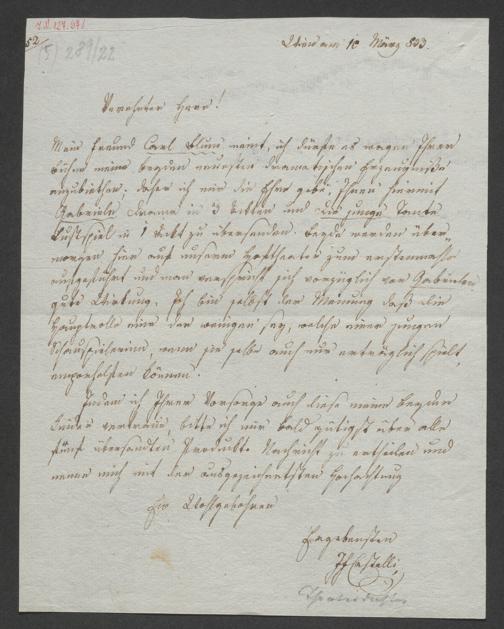 52
(5) 289/22
Wien am 10 März 833.
Verehrter Herr!
Mein Freund Carl Blum meint, ich dürfte es wagen Ihrer
Bühne meine beyden neuesten dramatischen Erzeugnisse
anzubiethen, daher ich mir die Ehre gebe, Ihnen hiermit
Gabriele, Drama in 3 Akten und die junge Tante
Lustspiel in 1 Akt zu übersenden. Beyde werden über-
morgen hier auf unserm Hoftheater zum erstenmahle
aufgeführt und man verspricht sich vorzüglich von Gabrielen
gute Wirkung. Ich bin selbst der Meinung daß die
Hauptrolle eine der wenigen sey, welche einer jungen
Schauspielerinn, wenn sie selbe auch nur erträglich spielt,
emporhelfen können.
Indem ich Ihrer Vorsorge auch diese meine beyden
Kinder vertraue, bitte ich mir bald gütigst über alle
fünf übersandten Produkte Nachricht zu ertheilen und
nenne mich mit der ausgezeichnetsten Hochachtung
Euer Wohlgebohren
Ergebensten
JFCastelli